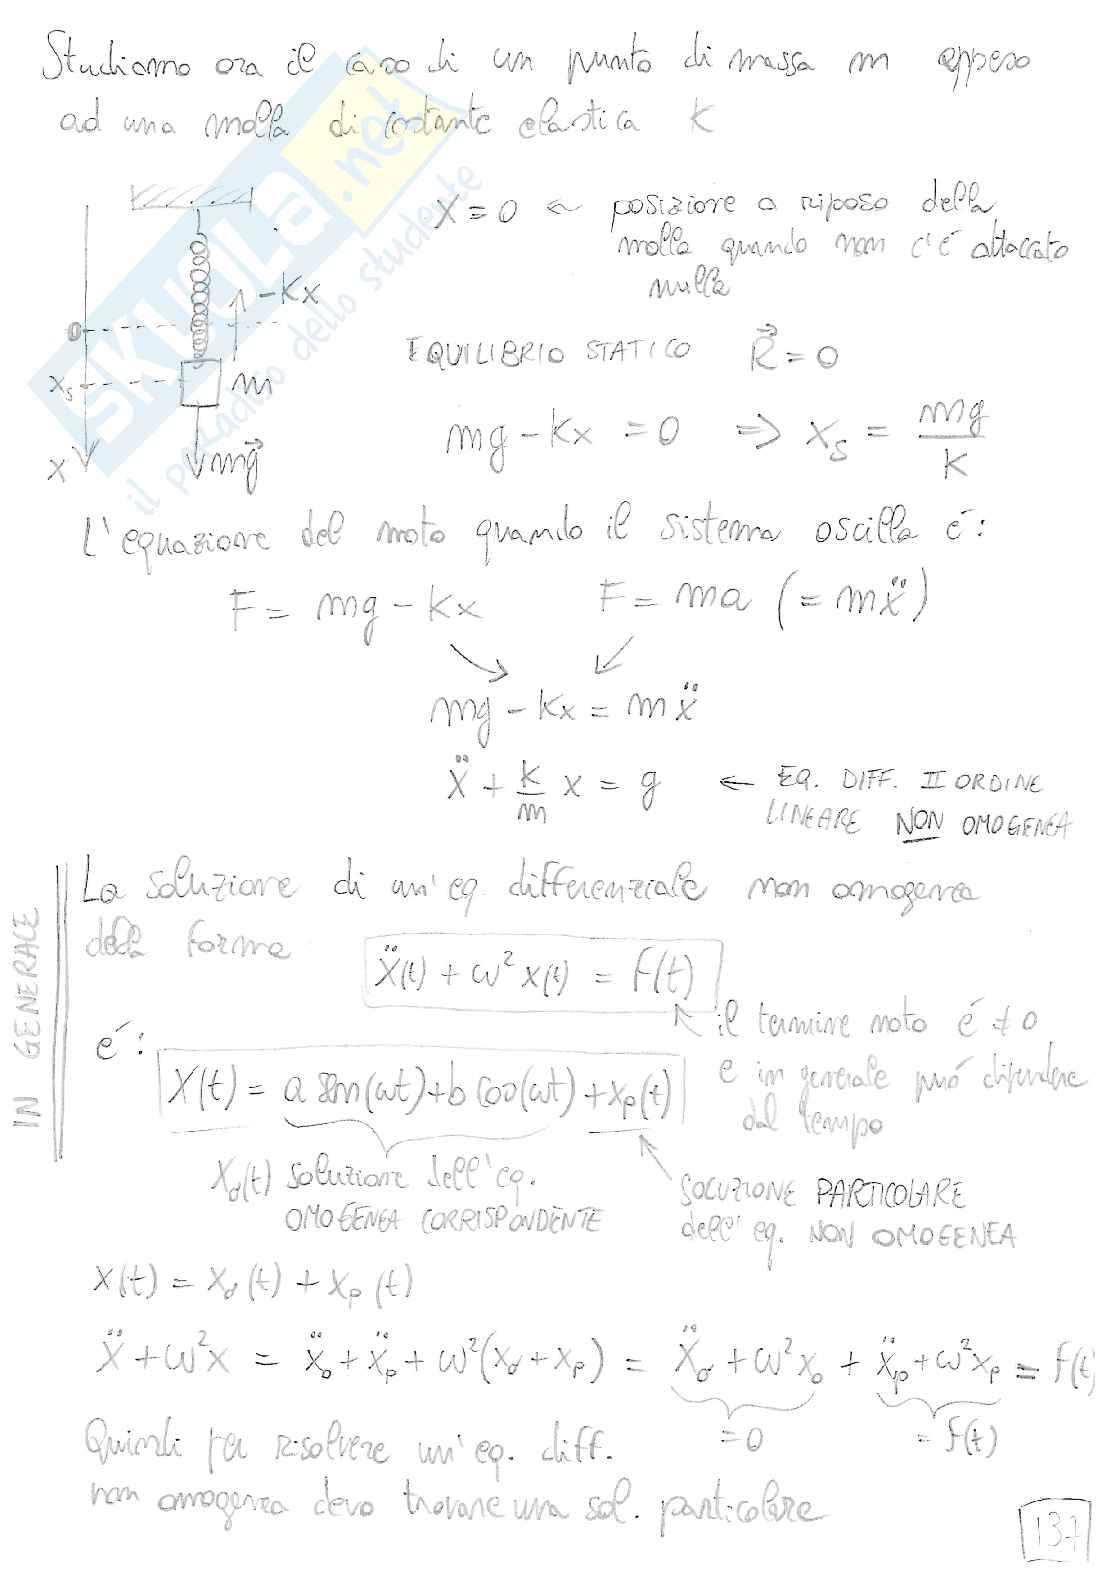 Studiamo ora il caso di un punto di massa m appeso
ad una molla di costante elastica K
X = 0 ← posizione a riposo della
molla quando non c'é attaccato
nulla
-Kx
0
EQUILIBRIO STATICO R⃗ = 0
x_s
m
mg - Kx = 0 ⇒ x_s = mg/K
x
mg⃗
L'equazione del moto quando il sistema oscilla é:
F = mg - Kx F = ma (= mẍ)
mg - Kx = mẍ
ẍ + K/m x = g ← EQ. DIFF. II ORDINE
LINEARE NON OMOGENEA
IN GENERALE
La soluzione di un'eq. differenziale non omogenea
della forma
ẍ(t) + ω² x(t) = f(t)
il termine noto é ≠ 0
e in generale puó dipendere
dal tempo
é:
X(t) = a sen(ωt) + b cos(ωt) + x_p(t)
x_o(t) soluzione dell'eq.
OMOGENEA CORRISPONDENTE
SOLUZIONE PARTICOLARE
dell'eq. NON OMOGENEA
x(t) = x_o(t) + x_p(t)
ẍ + ω²x = ẍ_o + ẍ_p + ω²(x_o + x_p) = ẍ_o + ω²x_o + ẍ_p + ω²x_p = f(t)
= 0 = f(t)
Quindi per risolvere un'eq. diff.
non omogenea devo trovare una sol. particolare
137
SKUOLA.net
il paradiso dello studente